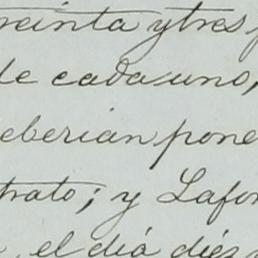 reinta y tres
de cada uno,
eberian pone
trato; y Lafon
el dia diez